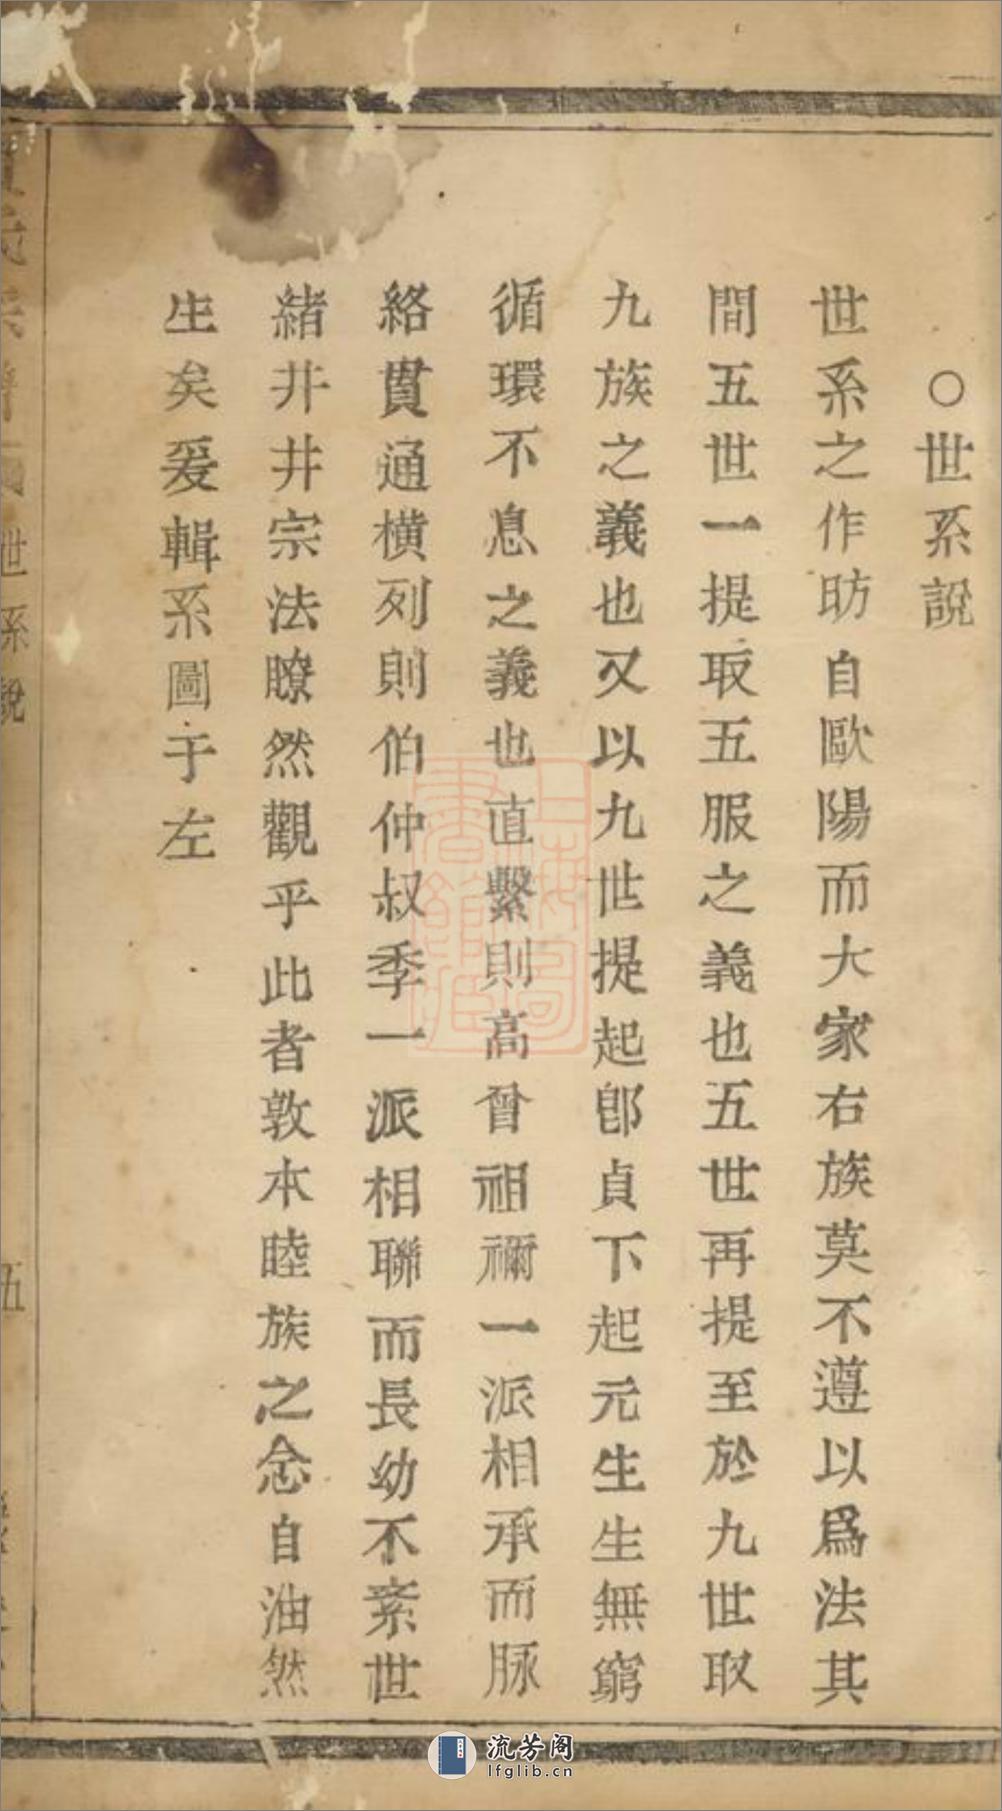 ○世系說
世系之作昉自歐陽而大家右族莫不遵以爲法其
間五世一提取五服之義也五世再提至於九世取
九族之義也又以九世提起卽貞下起元生生無窮
循環不息之義也直繫則高曾祖禰一派相承而脉
絡貫通橫列則伯仲叔季一派相聯而長幼不紊世
緒井井宗法瞭然觀乎此者敦本睦族之念自油然
生矣爰輯系圖于左
世系說
伍
上海圖書館藏
流芳阁
lfglib.cn